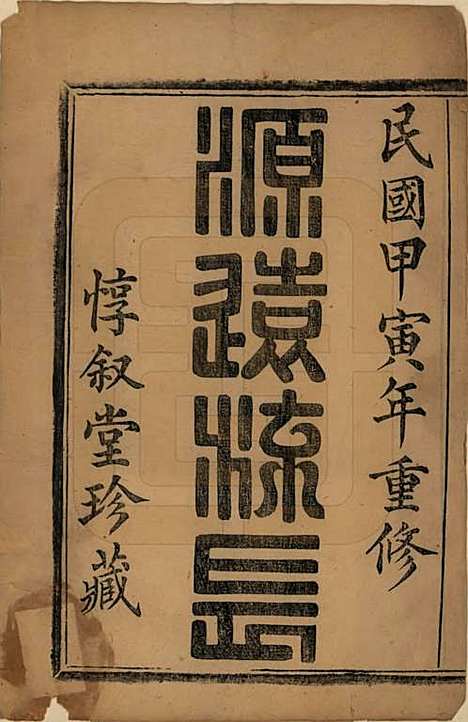 民國甲寅年重修
源遠流長
惇叙堂珍藏